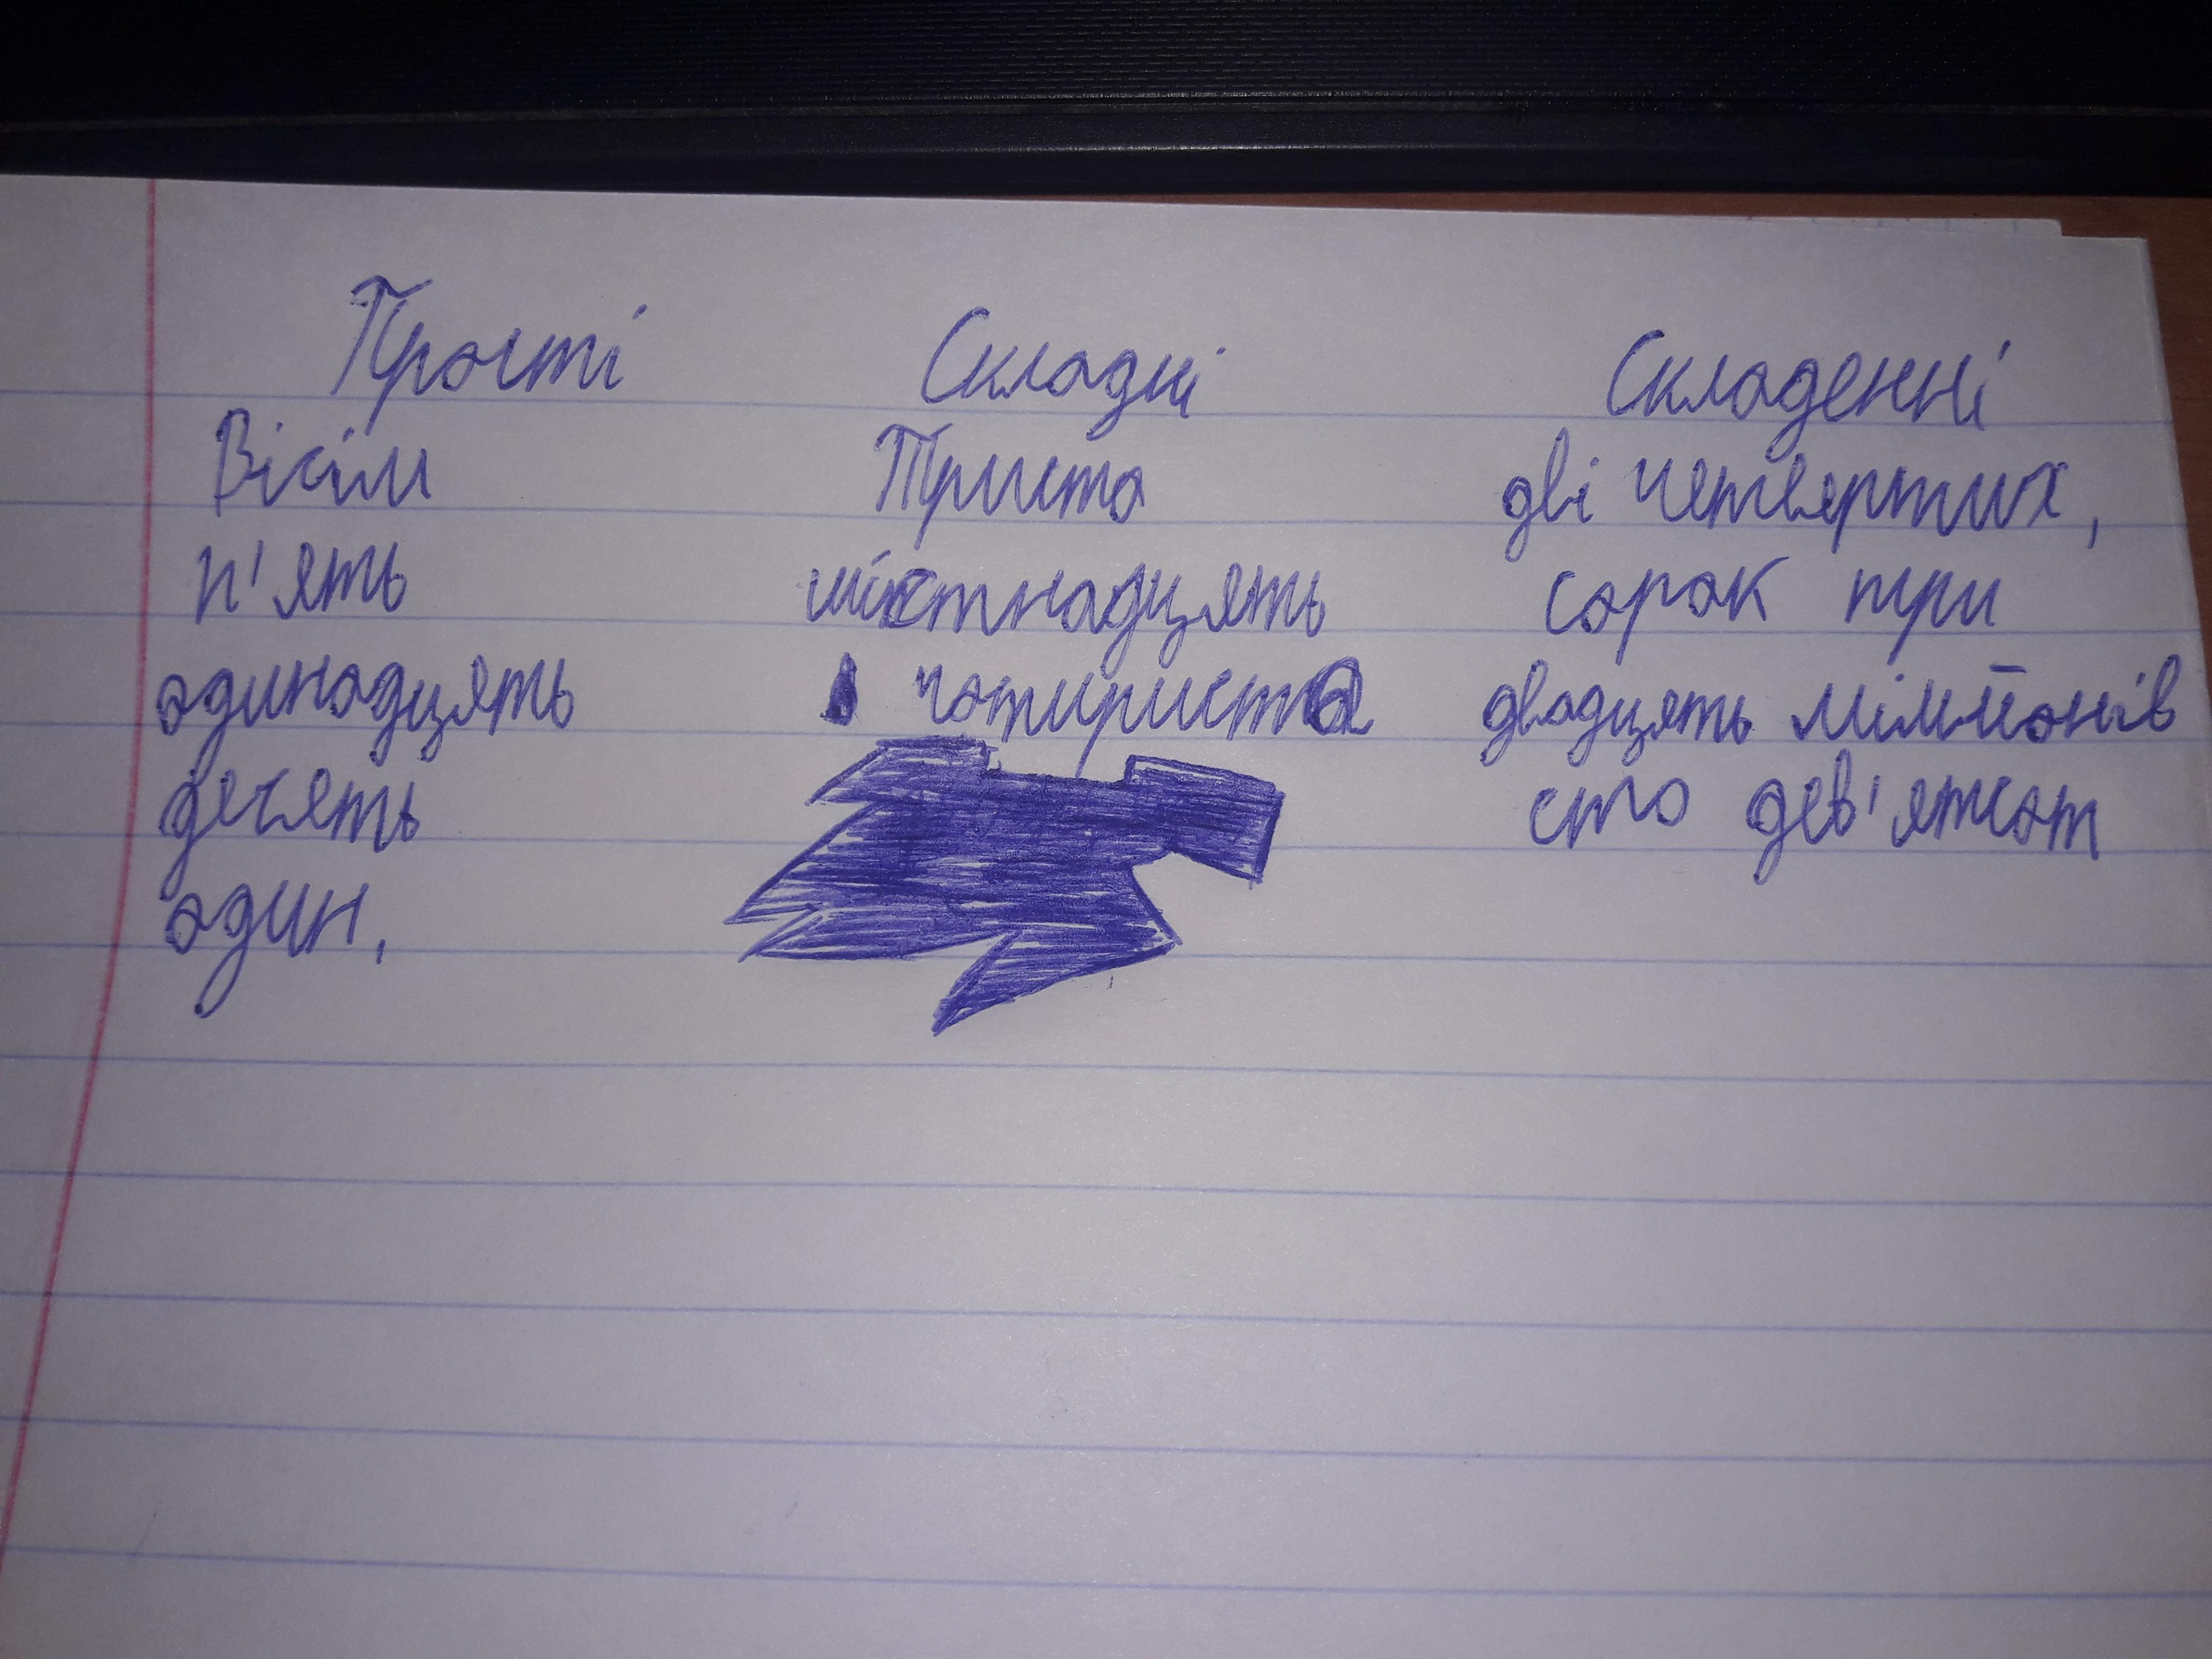 Прості Складні Складенні
Вісім Триста дві четвертих,
п'ять шістнадцять сорок три
одинадцять чотириста двадцять мільйонів
десять сто дев'ятсот
один,